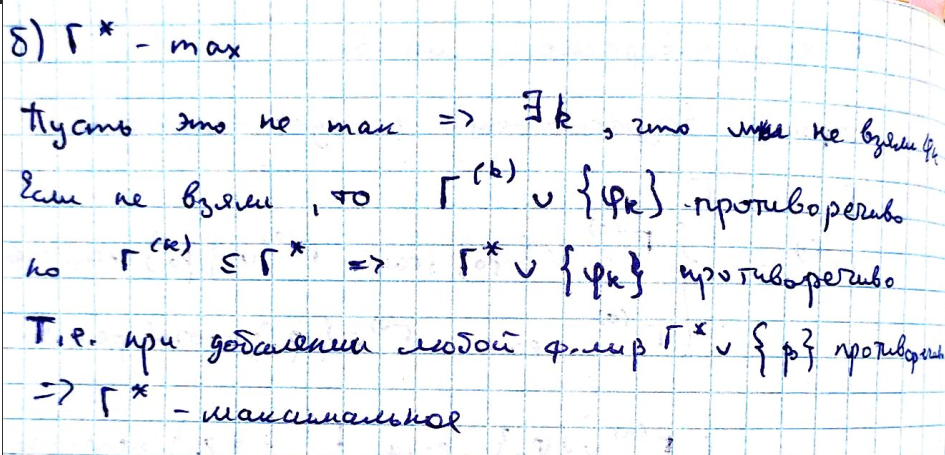 б) Γ* - max
Пусть это не так => ∃k, что мы не взяли φₖ
Если не взяли, то Γ⁽ᵏ⁾ ∪ {φₖ} - противоречиво
но Γ⁽ᵏ⁾ ⊆ Γ* => Γ* ∪ {φₖ} противоречиво
Т.е. при добавлении любой ф-лы β Γ* ∪ {β} противоречиво
=> Γ* - максимальное